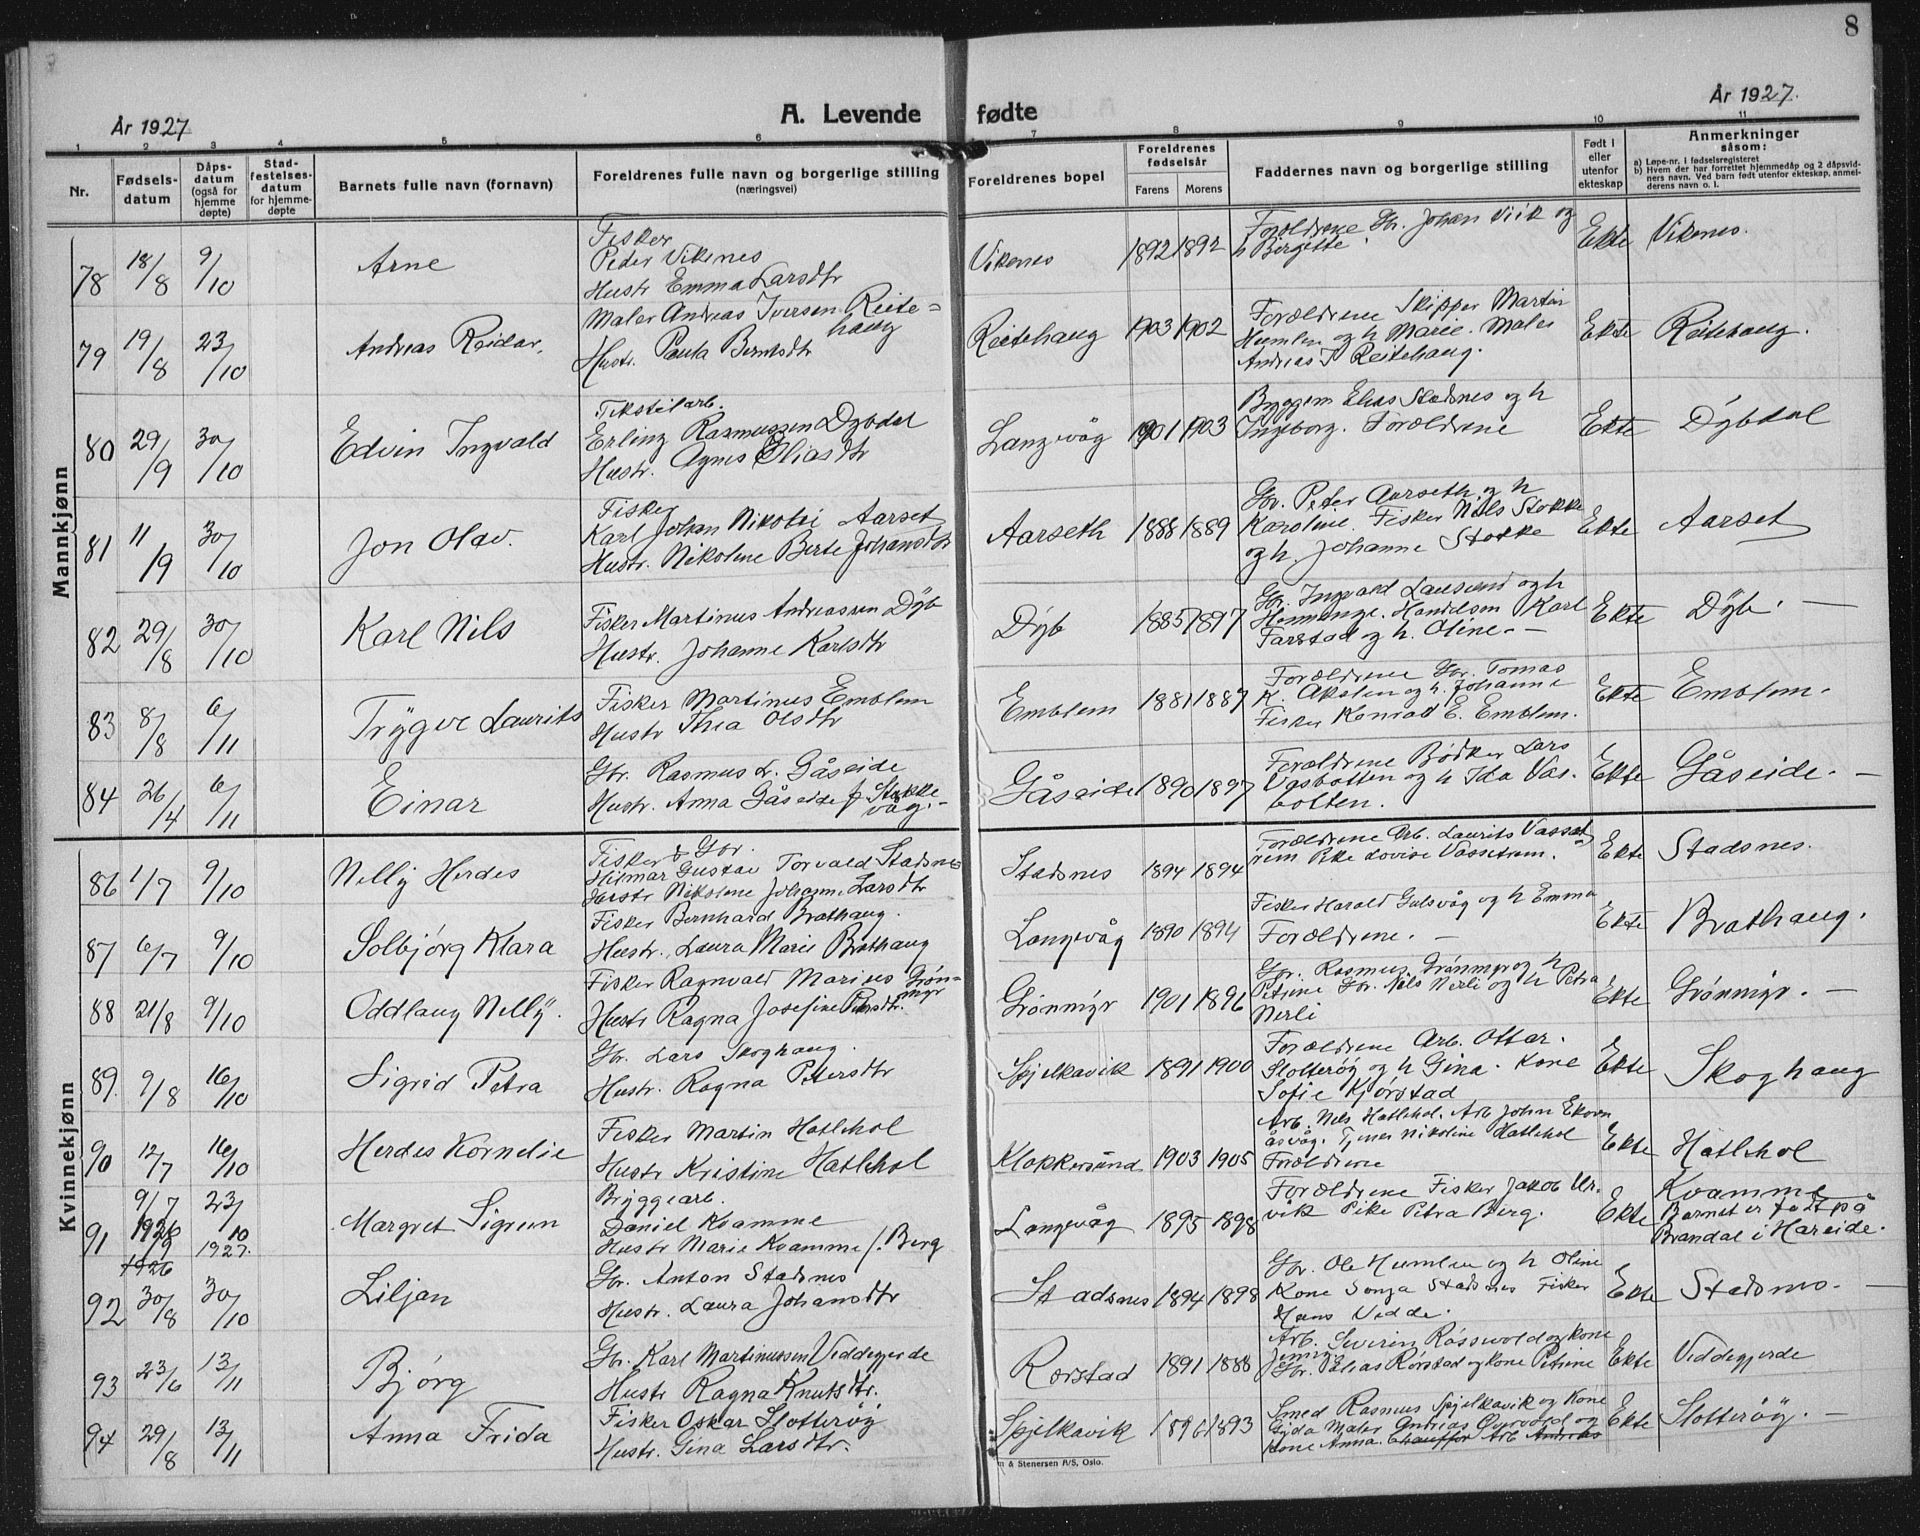 8
År 1927
A. Levende fødte
År 1927.
1 2 3 4 5 6 7 8 9 10 11
Nr.
Fødsels-
datum
Dåps-
datum
(også for
hjemme
døpte)
Stad-
festelses-
datum
for hjemme-
døpte
Barnets fulle navn (fornavn)
Foreldrenes fulle navn og borgerlige stilling
(næringsvei)
Foreldrenes bopel
Foreldrenes
fødselsår
Farens Morens
Faddernes navn og borgerlige stilling
Født i
eller
utenfor
ekteskap
Anmerkninger
såsom:
a) Løpe-nr. i fødselsregisteret
b) Hvem der har forrettet hjemmedåp og 2 dåpsvid-
ners navn. Ved barn født utenfor ekteskap, anmel-
derens navn o. l.
Mannkjønn
78 18/8 9/10 Arne
Fisker
Peder Vikenes
Hustr Emma Larsdtr
Vikenes 1892 1892
Forældrene Gbr. Johan Viik og
h Birgitte.
Ekte Vikenes.
79 19/8 23/10 Andreas Reidar.
Maler Andreas Iversen Reite=
haug
Hustr. Paula Berntsdtr
Reitehaug 1903 1902
Forældrene Skipper Martin
Humlen og h Marie. Maler
Andreas I Reitehaug.
Ekte Reitehaug.
80 29/9 30/10 Edvin Ingvald
Tekstilarb.
Erling Rasmussen Dybdal
Hustr. Agnes Eliasdtr
Langevåg 1901 1903
Byggem Elias Stadsnes og h
Ingeborg. Forældrene
Ekte Dybdal
81 11/9 30/10 Jon Olav.
Fisker
Karl Johan Nikolai Aarset
Hustr. Nikoline Berte Johansdtr
Aarseth 1888 1889
Gbr. Peter Aarseth og h
Karoline. Fisker Nils Stokke
og h. Johanne Stokke
Ekte Aarset
82 29/8 30/10 Karl Nils
Fisker Martinus Andreassen Dyb
Hustr. Johanne Karlsdtr
Dyb 1885 1897
Gbr. Ingvald Laursund og h
Handelsm Karl
Farstad og h. Oline. —
Ekte Dyb. —
83 8/8 6/11 Trygve Laurits
Fisker Martinus Emblem
Hustr Thea Olsdtr
Emblem 1881 1887
Forældrene Gbr. Tomas
K. Akslen og h. Johanne
Fisker Konrad E. Emblem.
Ekte Emblem.
84 26/4 6/11 Einar
Gbr. Rasmus L. Gåseide
Hustr. Anna Gåseide f. Stokke
våg. —
Gåseide 1890 1897
Forældrene Bødker Lars
Vasbotten og h Ida Vas-
botten.
Ekte Gåseide. —
Kvinnekjønn
86 1/7 9/10 Nelly Herdes
Fisker & Gbr.
Hilmar Gustav Torvald Stadsnes
Hustr Nikoline Johanne Larsdtr
Stadsnes 1894 1894
Forældrene Arb. Laurits Vasset
rem Pike Lovise Vassetrem.
Ekte Stadsnes.
87 6/7 9/10 Solbjørg Klara
Fisker Bernhard Brathaug.
Hustr. Laura Marie Brathaug
Langevåg 1890 1894
Fisker Harald Gulsvåg og h Emma
Forældrene. —
Ekte Brathaug.
88 21/8 9/10 Oddlaug Nelly.
Fisker Ragnvald Marius Grøn=
myr
Hustr Ragna Josefine Pedersdtr.
Grønmyr 1901 1896
Gbr. Rasmus Grønmyr og h
Petrine Gbr. Nils Nerli og h Petra
Nerli
Ekte Grønmyr. —
89. 9/8 16/10 Sigrid Petra
Gbr. Lars Skoghaug.
Hustr. Ragna Petersdtr
Spjelkavik 1891 1900
Forældrene Arb. Ottar
Slotterøy og h Gina. Kone
Sofie Kjørstad
Ekte Skoghaug
90 12/7 16/10 Herdes Kornelie
Fisker Martin Hatlehol
Hustr Kristine Hatlehol
Klokkersund 1903 1905
Arb. Nils Hatlehol. Arb John Ekorn
åsvåg. Tjener Nikoline Hatlehol
Forældrene
Ekte Hatlehol
91 9/7 1926 23/10 1927. Margret Sigrun
Bryggearb.
Daniel Kvamme
Hustr Marie Kvamme f. Berg
Langevåg 1895 1898
Forældrene Fisker Jakob Ur-
vik Pike Petra Berg.
Ekte Kvamme
Barnet er født på
Brandal i Hareide.
92 30/8 30/10 Liljan
Gbr. Anton Stadsnes
Hustr. Laura Johansdtr
Stadsnes 1894 1898
Gbr. Ole Humlen og h Oline
Kone Sonja Stadsnes Fisker
Hans Vedde.
Ekte Stadsnes —
93 23/6 13/11 Bjørg
Gbr. Karl Martinussen Viddegjerde
Hustr Ragna Knutsdtr.
Rørstad 1891 1888
Arb. Severin Røsvold og kone
Jenny
Gbr. Elias Rørstad og kone Petrine
Ekte Viddegjerde
94 29/8 13/11 Anna Frida
Fisker Oskar Slotterøy
Hustr. Gina Larsdtr.
Spjelkavik 1896 1893
Smed Rasmus Spjelkavik og Kone
Gyda Maler Andreas Overvold og
kone Anna. Chauffør Arb Andreas
Ekte Slotterøy. —
m & Stenersen A/S, Oslo.